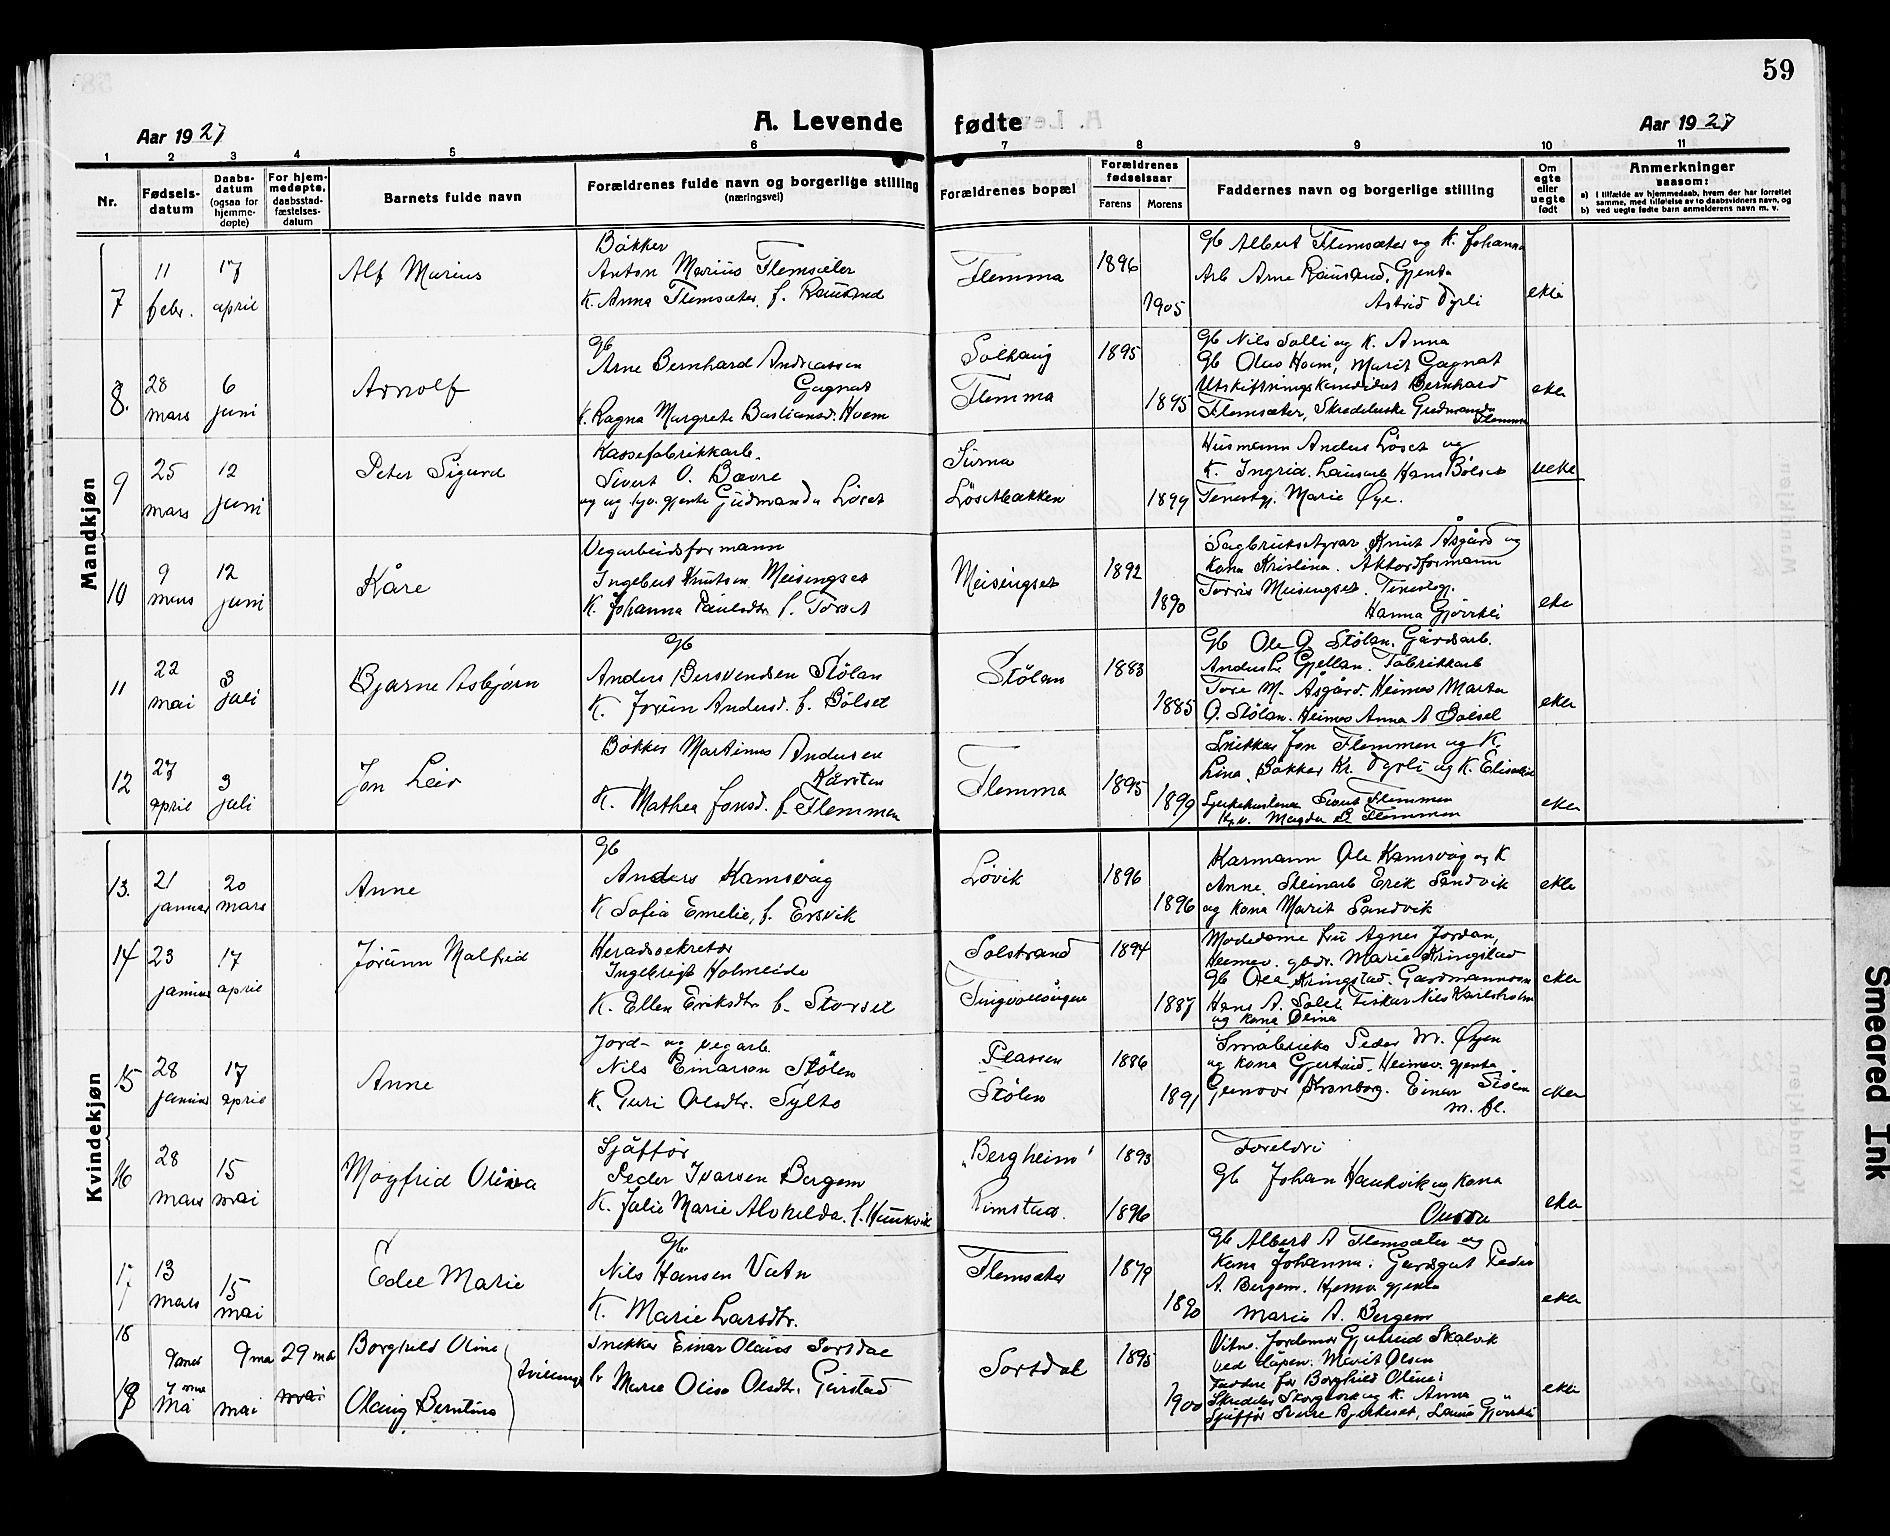 59
Aar 1927
A. Levende fødte
Aar 1927
1 2 3 4 5 6 7 8 9 10 11
Nr.
Fødsels-
datum
Daabs-
datum
(ogsaa for
hjemme-
døpte)
For hjem-
medøpte,
daabsstad-
fæstelses-
datum
Barnets fulde navn
Forældrenes fulde navn og borgerlige stilling
(næringsvei)
Forældrenes bopæl
Forældrenes
fødselsaar
Farens
Morens
Faddernes navn og borgerlige stilling
Om
egte
eller
uegte
født
Anmerkninger
saasom:
a) I tilfælde av hjemmedaab, hvem der har forrettet
samme, med tilføielse av to daabsvidners navn, og
b) ved uegte fødte barn anmelderens navn m. v.
Mandkjøn
7
11
febr.
17
april
Alf Marius
Båkker
Anton Marius Flemsæter
K. Anna Flemsæter, f. Rausand
Flemma
1896
1905
Gb Albert Flemsæter og K. Johanna
Arb Arne Rausand, Gjenta
Astrid Dyrli
ekte
8.
28
mars
6
juni
Arnolf
Gb
Arne Bernhard Andreassen
Gagnat
K. Ragna Margrete Bastiansd. Hoem
Solhaug
Flemma
1895
1895
Gb Nils Solli og K. Anna
Gb Olus Hoem, Marit Gagnat
Utskiftningskandidat Bernhard
Flemsæter, Skredderske Gudmunda
Flemma
ekte
9
25
mars
12
juni
Peter Sigurd
Kassefabrikkarb.
Sivert O. Bævre
og ug. gjente Gudmunda Løset
Surna
Løsetbakken
1899
Husmann Anders Løset og
K. Ingrid. Lausarb Hans Bølset
Tenestgj. Marie Øye.
uekte
10
9
mars
12
juni
Kåre
Vegarbeidsformann
Ingebert Knutsen Meisingset
K. Johanna Paulsdtr f. Torset
Meisingset
1892
1890
Sagbruksstyrar Knut Åsgård og
Kona Kristina. Akkordformann
Torris Meisingset. Tenestgj.
Hanna Gjørvkli
ekte
11
22
mai
3
juli
Bjarne Asbjørn
Gb
Anders Bersvendsen Stølan
K. Jorun Andersd. f. Bølset
Stølan
1883
1885
Gb Ole O Stølan. Gårdsarb.
Anders L Gjellan. Fabrikkarb
Tore M. Åsgård. Heimev Marta
O. Stølan. Heimev Anna A Bølset
ekte
12
27
april
3
juli
Jon Leiv
Båkker Martinus Andersen
Karsten
K. Mathea Jonsd. f. Flemmen
Flemma
1895
1899
Snikkar Jon Flemmen og K.
Lina. Båkker Kr. Dyrli og K.
Sivert Flemmen
Magda Flemmen
ekte
Kvindekjøn
13.
21
januar
20
mars
Anne
Gb
Anders Kamsvåg
K Sofia Emelie, f. Ersvik
Løvik
1896
1896
Karmann Ole Kamsvåg og K
Anne. Steinarb Erik Sandvik
og kona Marit Sandvik
ekte
14
23
januar
17
april
Jorunn Malfrid
Heradssekretær
Ingebrigt Holmeide
K. Ellen Eriksdtr f. Storset
Solstrand
Tingvollvågen
1894
1887
Motedame fru Agnes Jordan,
Heimev. gbdr. Marie Kringstad
Gb Ole Kringstad. Gardmannsson
Hans A. Fiskar Nils Karlsholm
og kona Olina
ekte
15
28
januar
17
april
Anne
Jord- og vegarb.
Nils Einarson Stølen
K. Guri Olsdtr. Sylte
Plassen
Stølen
1886
1891
Småbruks Peder M. Øyen
og kona Gjertrud. Heimev. gjenta
Gunvor Strandbog. Einar Støen
m. fl.
ekte
16
28
mars
15
mai
Magfrid Olivia
Sjåffør
Peder Ivarsen Bergem
K. Julie Marie Alvhilda. f. Haukvik
"Bergheim"
Rimstad.
1893
1896
Foreldri
Gb Johan Haukvik og kona
ekte
17
13
mars
15
mai
Edel Marie
Gb.
Nils Hansen Vatn
K. Marie Larsdtr.
Flemsæter
1879
1890
Gb Albert A Flemsæter og
kona Johanna. Gardsgut Peder
A. Bergem. Hjemv. gjenta
Marie A. Bergem
ekte
18
9
9 mai
29 mai
Borghild Oline
Tvillinger
Snikker Einar Olaus Sorsdal
Marie Olsdtr. Girstad
Sorsdal
1895
1900
Vitn. Jordmor Gjertrud Skalvik
ved dåpen. Marit Olsen
Faddre for Borghild Oline:
og K. Anna
ekte
19
mai
mai
Olaug Berntina
Smeared Ink